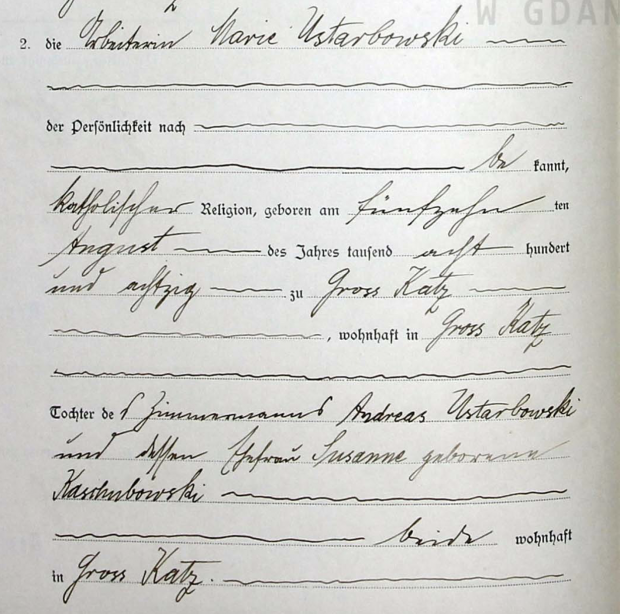 W GDAN
2. die Arbeiterin Marie Ustarbowski
der Persönlichkeit nach
be kannt,
katholischer Religion, geboren am fünfzehn ten
August des Jahres tausend acht hundert
und achtzig zu Gross Katz
, wohnhaft in Gross Katz
Tochter de s Zimmermanns Andreas Ustarbowski
und dessen Ehefrau Susanne geborene
Kaschubowski
beide wohnhaft
in Gross Katz.